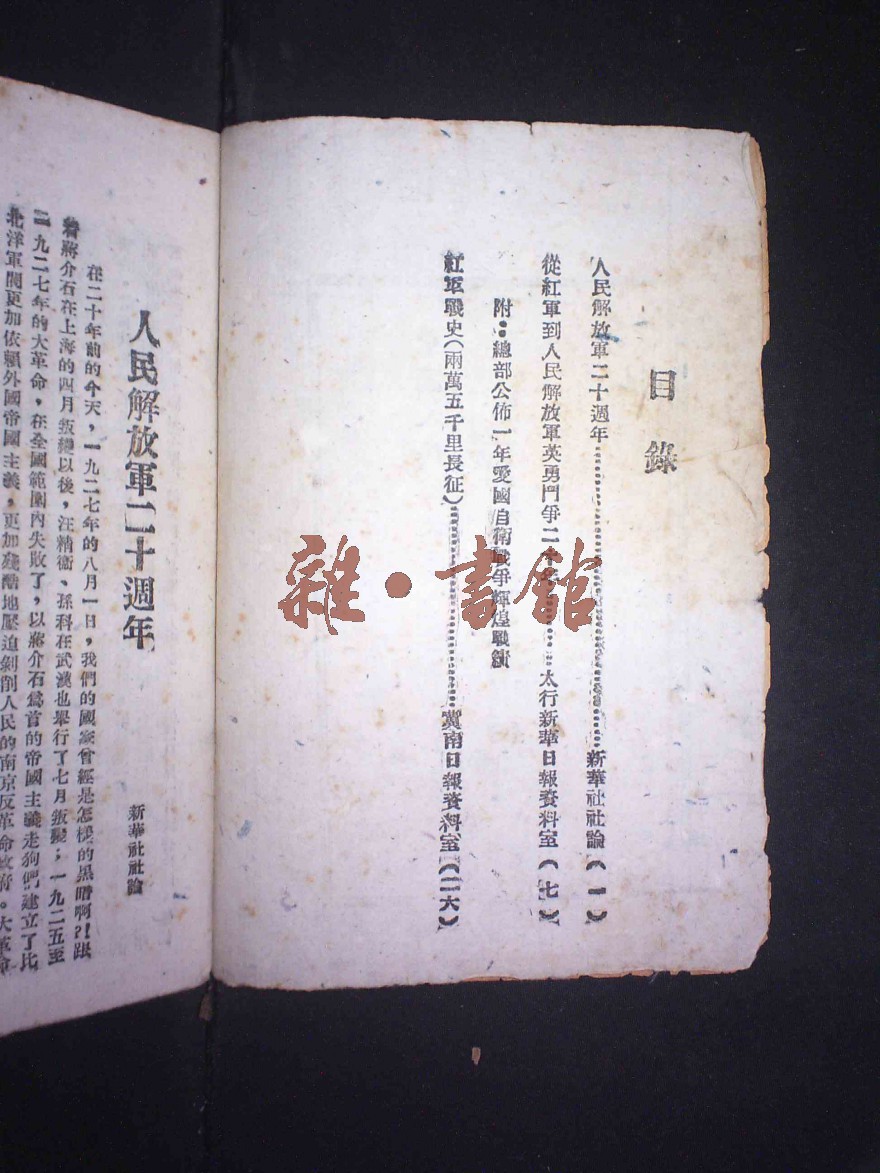 目錄
人民解放軍二十週年……新華社社論（一）
從紅軍到人民解放軍英勇鬥爭二十年……太行新華日報資料室（七）
附：總部公佈一年愛國自衛戰爭輝煌戰績
紅軍戰史（兩萬五千里長征）……冀南日報資料室（二六）
雜·書館
人民解放軍二十週年
新華社社論
在二十年前的今天，一九二七年的八月一日，我們的國家曾經是怎樣的黑暗啊?!跟
着蔣介石在上海的四月叛變以後，汪精衞、孫科在武漢也舉行了七月叛變；一九二五至
一九二七年的大革命，在全國範圍內失敗了，以蔣介石爲首的帝國主義走狗們建立了比
北洋軍閥更加依賴外國帝國主義，更加殘酷地壓迫剝削人民的南京反革命政府。大革命